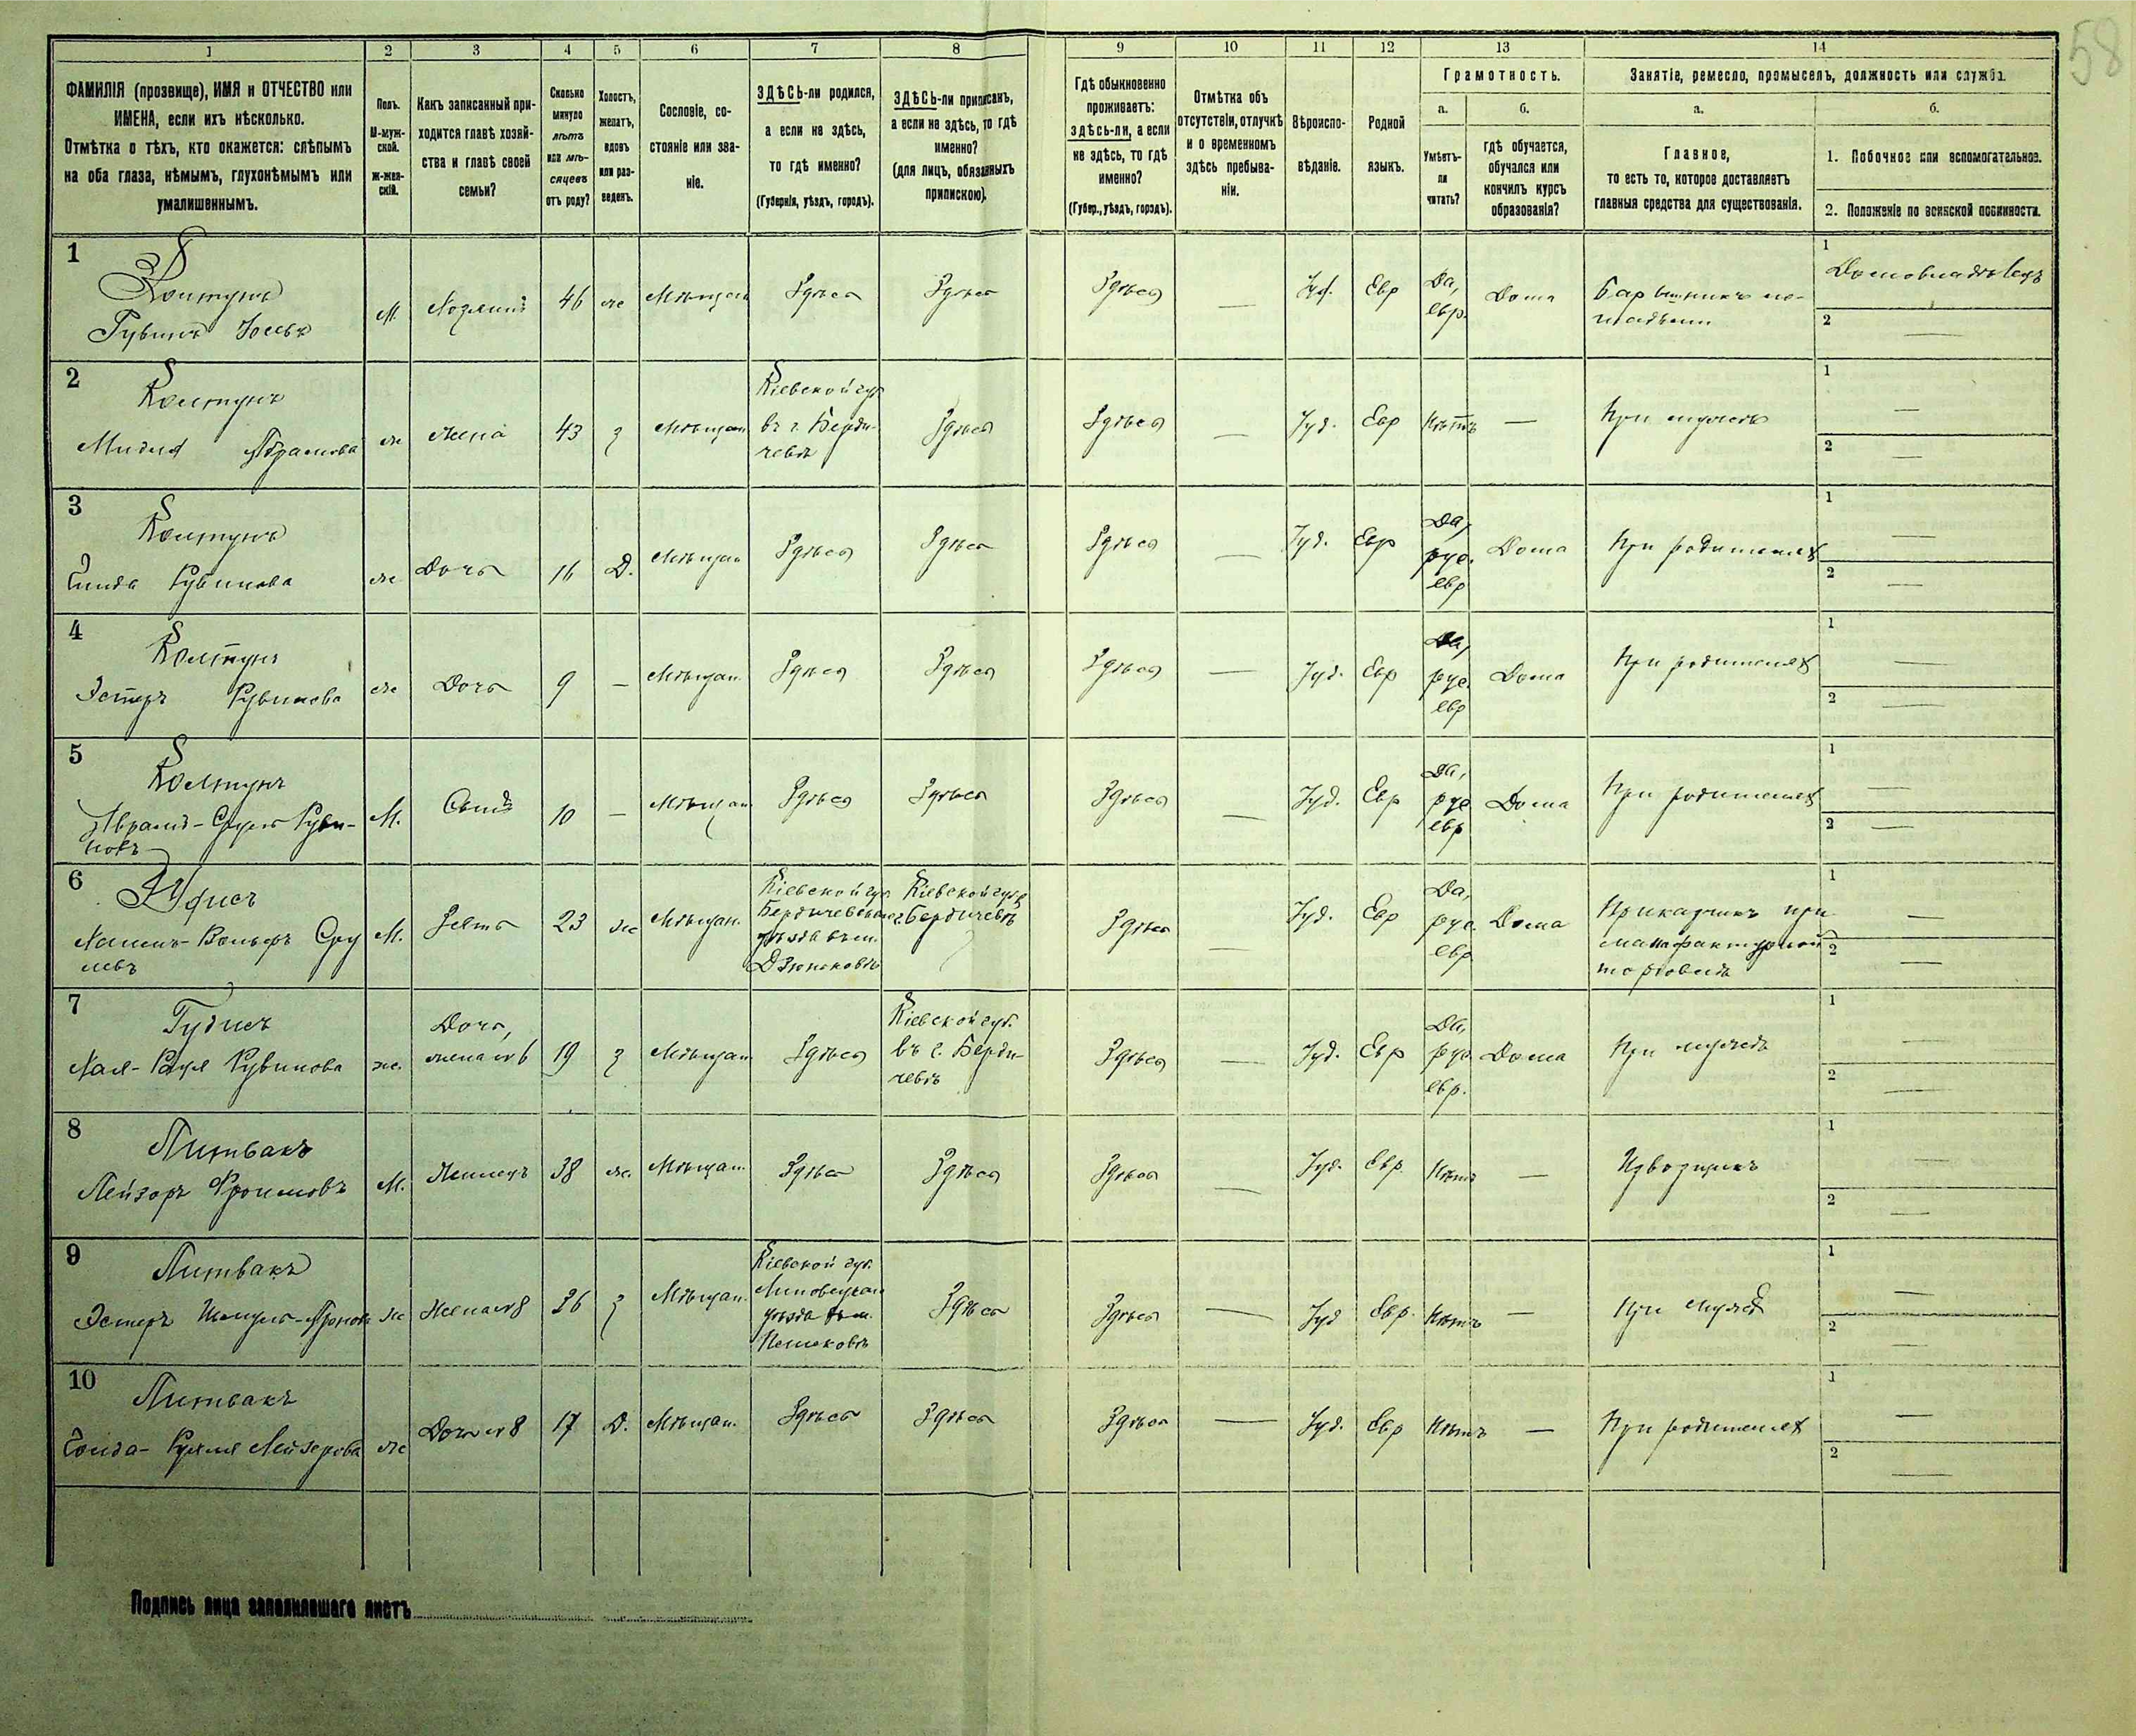 58
1 2 3 4 5 6 7 8 9 10 11 12 13 14
ФАМИЛІЯ (прозвище), ИМЯ и ОТЧЕСТВО или
ИМЕНА, если ихъ нѣсколько.
Отмѣтка о тѣхъ, кто окажется: слѣпымъ
на оба глаза, нѣмымъ, глухонѣмымъ или
умалишеннымъ.
Полъ.
М-муж-
ской.
Ж-жен-
скій.
Какъ записанный при-
ходится главѣ хозяй-
ства и главѣ своей
семьи?
Сколько
минуло
лѣтъ
или мѣ-
сяцевъ
отъ роду?
Холостъ,
женатъ,
вдовъ
или раз-
веденъ.
Сословіе, со-
стояніе или зва-
ніе.
ЗДѢСЬ-ли родился,
а если не здѣсь,
то гдѣ именно?
(Губернія, уѣздъ, городъ).
ЗДѢСЬ-ли приписанъ,
а если не здѣсь, то гдѣ
именно?
(для лицъ, обязанныхъ
припискою).
Гдѣ обыкновенно
проживаетъ:
здѣсь-ли, а если
не здѣсь, то гдѣ
именно?
(Губер., уѣздъ, городъ).
Отмѣтка объ
отсутствіи, отлучкѣ
и о временномъ
здѣсь пребыва-
ніи.
Вѣроиспо-
вѣданіе.
Родной
языкъ.
Грамотность.
а.
Умѣетъ-
ли
читать?
б.
гдѣ обучается,
обучался или
кончилъ курсъ
образованія?
Занятіе, ремесло, промыселъ, должность или служба.
а.
Главное,
то есть то, которое доставляетъ
главныя средства для существованія.
б.
1. Побочное или вспомогательное.
2. Положеніе по воинской повинности.
1
Колтунъ
Рувинъ
М. Хозяинъ 46 же Мѣщан Здѣсь Здѣсь Здѣсь — Іуд. Евр Да,
евр.
Дома
Барышникъ ло-
шадьми
1 Домовладѣлецъ
2 —
2
Колтунъ
Абрамова
же жена 43 з Мѣщан
Кіевской губ
въ г. Берди-
чевѣ
Здѣсь Здѣсь — Іуд. Евр Нѣтъ — При мужѣ
1 —
2 —
3
Колтунъ
Рувинова
же Дочь 16 Д. Мѣщан Здѣсь Здѣсь Здѣсь — Іуд. Евр Да,
рус.
евр
Дома При родителях
1 —
2 —
4
Колтунъ
Эстеръ Рувинова
же Дочь 9 — Мѣщан. Здѣсь Здѣсь Здѣсь — Іуд. Евр Да,
рус.
евр
Дома При родителях
1 —
2 —
5
Колтунъ
Абрамъ-Сруль Руви-
новъ
М. Сынъ 10 — Мѣщан Здѣсь Здѣсь Здѣсь — Іуд. Евр Да,
рус
евр
Дома При родителях
1 —
2 —
6
Вольфъ Сру
левъ
М. Зять 23 же Мѣщан.
Кіевской губ
Бердичевскаго
уѣзда въ м.
Дзюнковѣ
Кіевской губ
г. Бердичевѣ
Здѣсь — Іуд. Евр Да,
рус.
евр
Дома
Прикащикъ при
мануфактурной
торговлѣ
1 —
2 —
7
Хая- Рувинова
же. Дочь,
жена № 6 19 з Мѣщан Здѣсь
Кіевской губ.
въ г. Берди-
чевѣ
Здѣсь — Іуд. Евр Да,
рус
евр.
Дома При мужѣ
1 —
2 —
8
Литвакъ
Лейзоръ Фроимовъ
М. Жилецъ 38 же. Мѣщан. Здѣсь Здѣсь Здѣсь — Іуд. Евр. Нѣтъ — Извозщикъ
1 —
2 —
9
Литвакъ
Эстеръ
же Жена № 8 36 з Мѣщан.
Кіевской губ.
Липовецкаго
уѣзда въ м.
Здѣсь Здѣсь — Іуд Евр. Нѣтъ — При мужѣ
1 —
2 —
10
Литвакъ
Лейзерова
же Дочь № 8 17 Д. Мѣщан. Здѣсь Здѣсь Здѣсь — Іуд. Евр Нѣтъ — При родителях
1 —
2 —
Подпись лица заполнившаго листъ